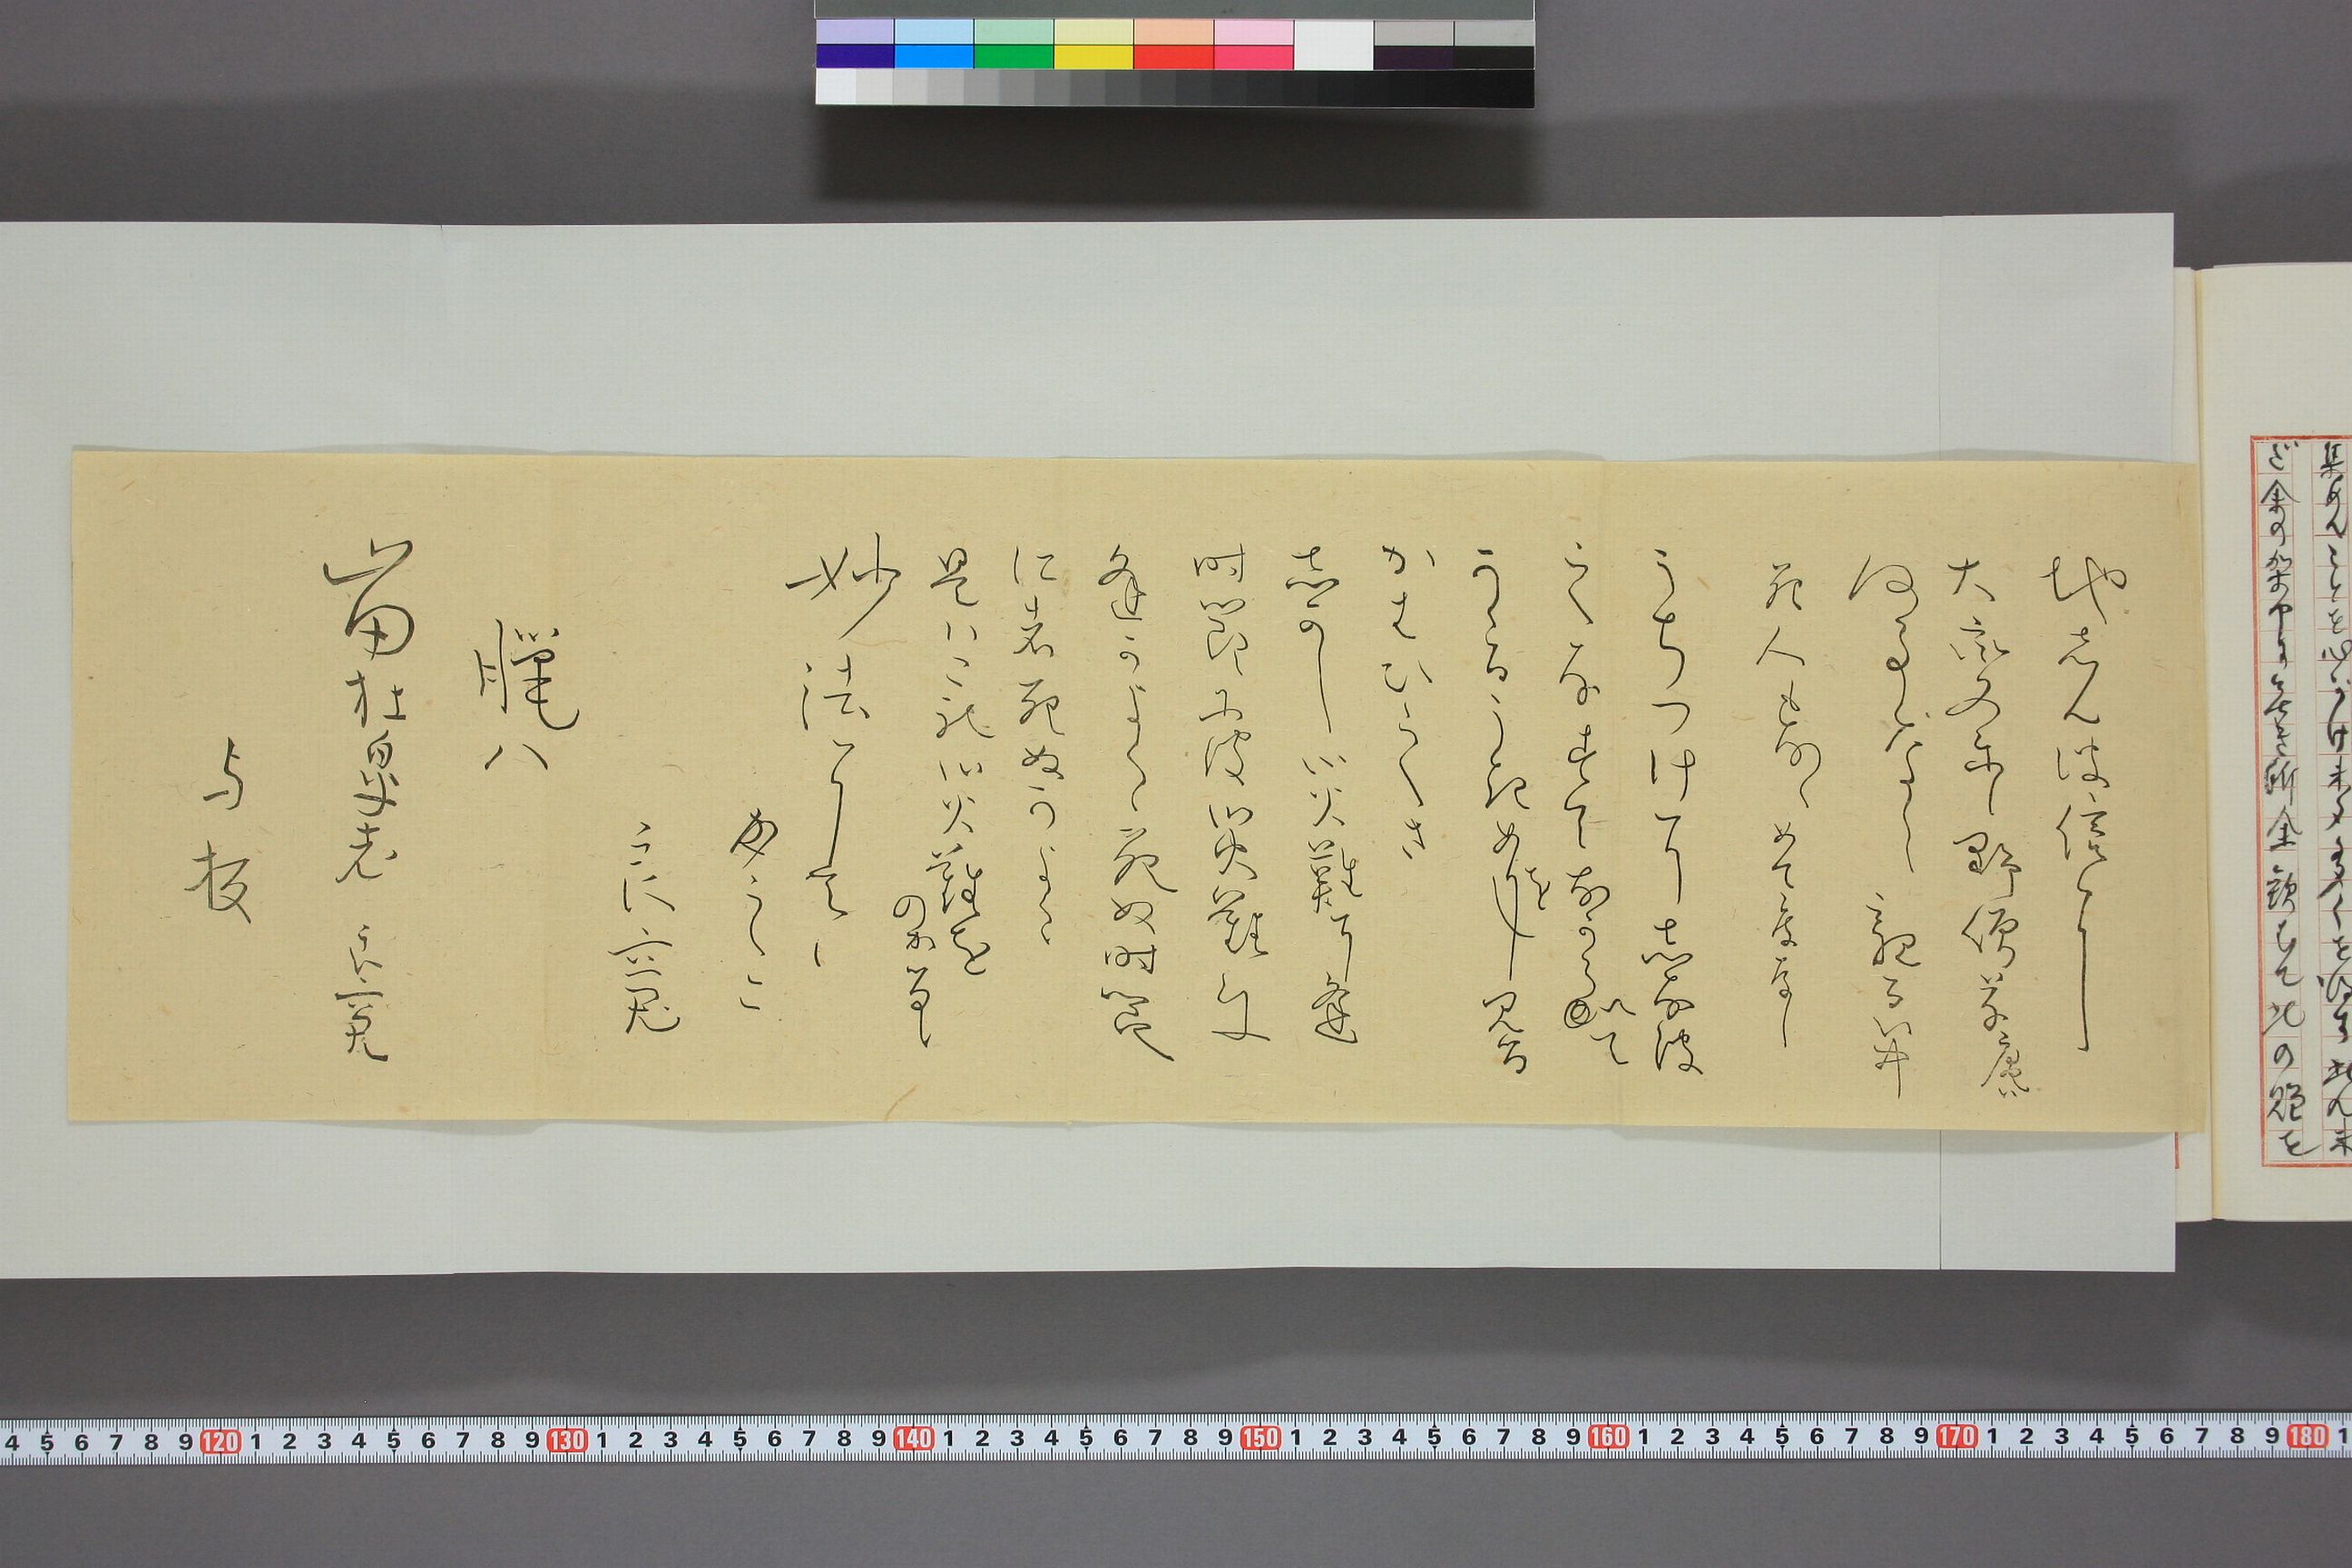 地しんは信に
大変に候 野僧草庵ハ
何事なく 親るい中
死人もなくめで度存候
うちつけにしなば
しなずてながらへて
かゝるうきめを見る
がはひしさ
しかし災難に逢
時節には災難に
逢がよく候 死ぬ時節
には死ぬがよく候
是ハこれ災難を
のがるゝ
妙法にて候
かしこ
良寛
臘八
山田杜皐老 良寛
与板